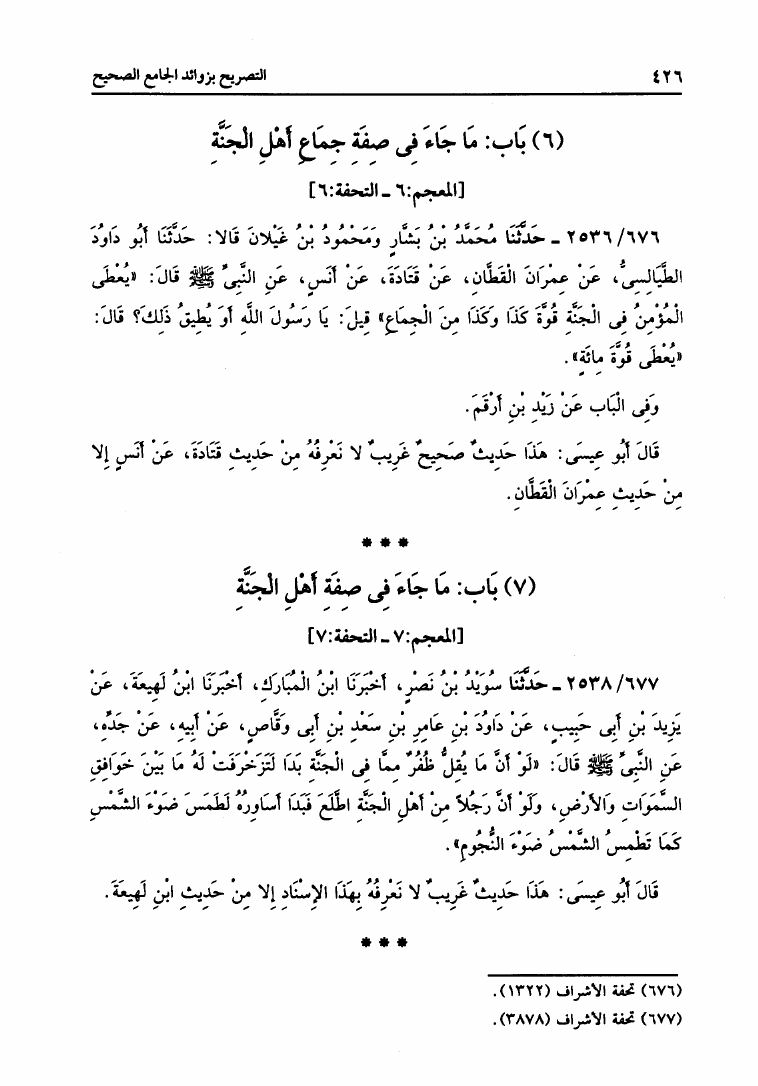 ٤٢٦ التصريح بزوائد الجامع الصحيح
(٦) بَاب: مَا جَاءَ فِى صِفَةِ جِمَاعِ أَهْلِ الْجَنَّةِ
[المعجم:٦ - التحفة:٦]
٢٥٣٦/٦٧٦ - حَدَّثَنَا مُحَمَّدُ بْنُ بَشَّارٍ وَمَحْمُودُ بْنُ غَيْلانَ قَالا: حَدَّثَنَا أَبُو دَاودَ
الطَّيَالِسِىُّ، عَنْ عِمْرَانَ الْقَطَّانِ، عَنْ قَتَادَةَ، عَنْ أَنَسٍ، عَنِ النَّبِىِّ ﷺ قَالَ: «يُعْطَى
الْمُؤْمِنُ فِى الْجَنَّةِ قُوَّةَ كَذَا وَكَذَا مِنَ الْجِمَاعِ» قِيلَ: يَا رَسُولَ اللَّهِ أَوَ يُطِيقُ ذَلِكَ؟ قَالَ:
«يُعْطَى قُوَّةَ مِائَةٍ».
وَفِى الْبَاب عَنْ زَيْدِ بْنِ أَرْقَمَ.
قَالَ أَبُو عِيسَى: هَذَا حَدِيثٌ صَحِيحٌ غَرِيبٌ لا نَعْرِفُهُ مِنْ حَدِيثِ قَتَادَةَ، عَنْ أَنَسٍ إِلا
مِنْ حَدِيثِ عِمْرَانَ الْقَطَّانِ.
* * *
(٧) بَاب: مَا جَاءَ فِى صِفَةِ أَهْلِ الْجَنَّةِ
[المعجم:٧ - التحفة:٧]
٢٥٣٨/٦٧٧ - حَدَّثَنَا سُوَيْدُ بْنُ نَصْرٍ، أَخْبَرَنَا ابْنُ الْمُبَارَكِ، أَخْبَرَنَا ابْنُ لَهِيعَةَ، عَنْ
يَزِيدَ بْنِ أَبِى حَبِيبٍ، عَنْ دَاوُدَ بْنِ عَامِرِ بْنِ سَعْدِ بْنِ أَبِى وَقَّاصٍ، عَنْ أَبِيهِ، عَنْ جَدِّهِ،
عَنِ النَّبِىِّ ﷺ قَالَ: «لَوْ أَنَّ مَا يُقِلُّ ظُفُرٌ مِمَّا فِى الْجَنَّةِ بَدَا لَتَزَخْرَفَتْ لَهُ مَا بَيْنَ خَوَافِقِ
السَّمَوَاتِ وَالأَرْضِ، وَلَوْ أَنَّ رَجُلاً مِنْ أَهْلِ الْجَنَّةِ اطَّلَعَ فَبَدَا أَسَاوِرُهُ لَطَمَسَ ضَوْءَ الشَّمْسِ
كَمَا تَطْمِسُ الشَّمْسُ ضَوْءَ النُّجُومِ».
قَالَ أَبُو عِيسَى: هَذَا حَدِيثٌ غَرِيبٌ لا نَعْرِفُهُ بِهَذَا الإِسْنَادِ إِلا مِنْ حَدِيثِ ابْنِ لَهِيعَةَ.
* * *
(٦٧٦) تحفة الأشراف (١٣٢٢).
(٦٧٧) تحفة الأشراف (٣٨٧٨).